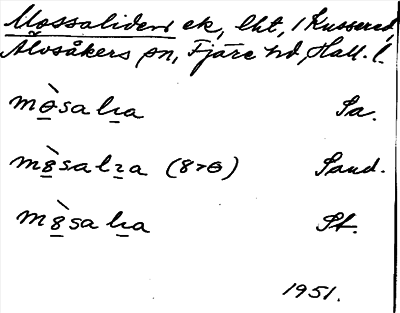 Mossaliden ek, lht, i Kussered,
Älvsåkers sn, Fjäre hd, Hall. l.
mɵ̀salıa Sa.
m8̀salıa (8>ɵ) Sand.
m8̀salıa St.
1951.